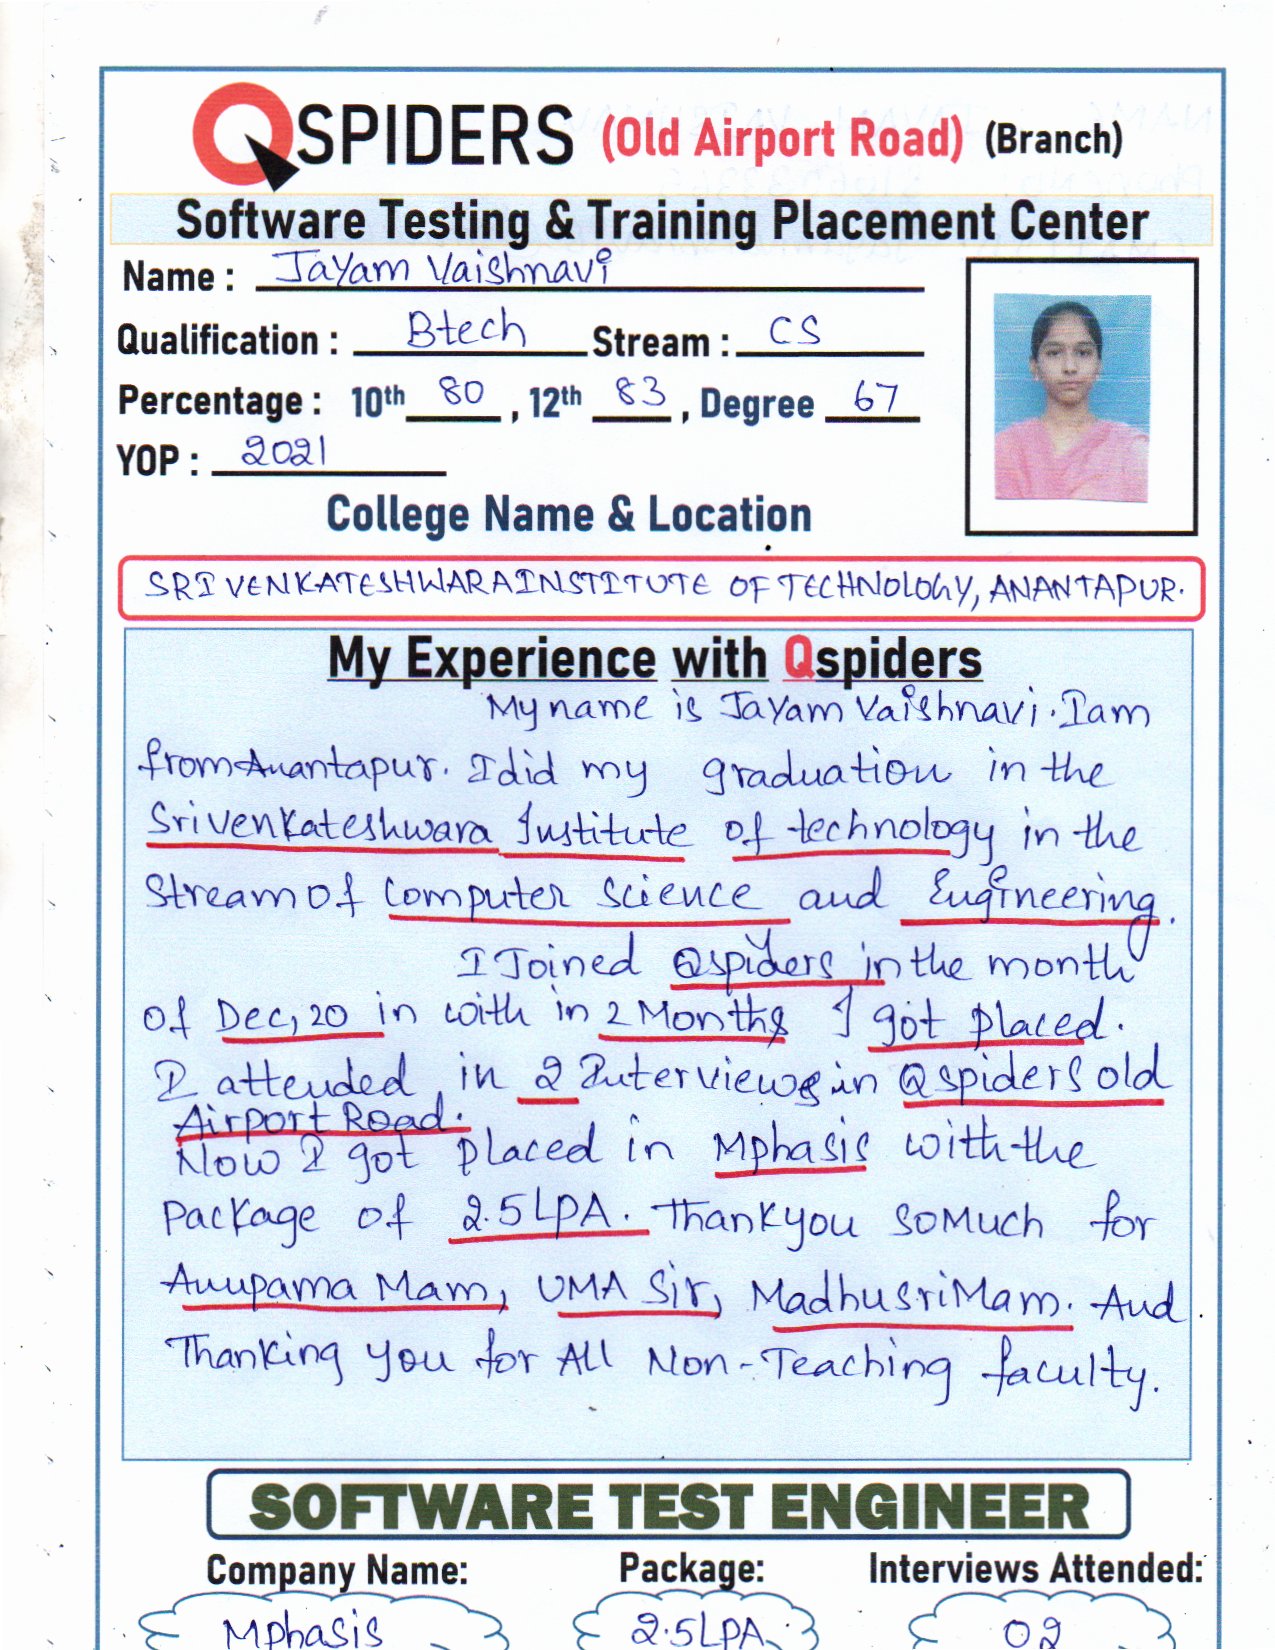 QSPIDERS (Old Airport Road) (Branch)
Software Testing & Training Placement Center
Name : Jayam Vaishnavi
Qualification : Btech Stream : CS
Percentage : 10th 80 , 12th 83 , Degree 67
YOP : 2021
College Name & Location
SRI VENKATESHWARA INSTITUTE OF TECHNOLOGY, ANANTAPUR.
My Experience with Qspiders
My name is Jayam Vaishnavi. I am
from Anantapur. I did my graduation in the
Sri Venkateshwara Institute of technology in the
Stream of Computer Science and Engineering.
I Joined Qspiders in the month
of Dec, 20 in with in 2 Months I got placed.
I attended in 2 Interviews in Qspiders old
Airport Road.
Now I got placed in Mphasis with the
Package of 2.5 LPA. Thank you so Much for
Anupama Mam, UMA Sir, Madhusri Mam. And
Thanking you for All Non-Teaching faculty.
SOFTWARE TEST ENGINEER
Company Name: Package: Interviews Attended:
Mphasis 2.5LPA. 02